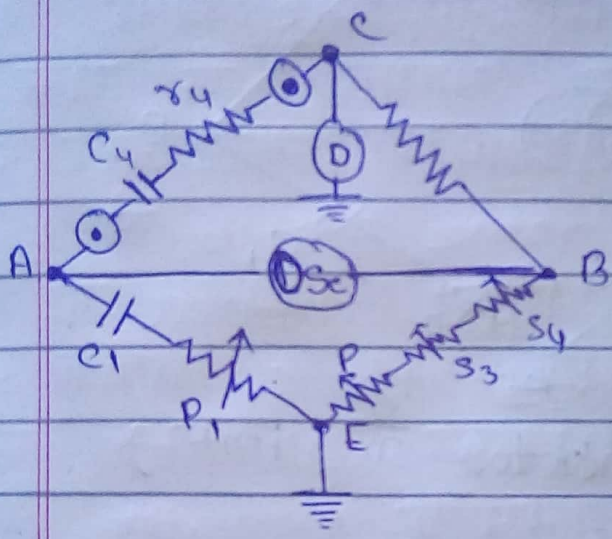 C
r4
C4
D
A
Osc
B
C1
S4
P
S3
P1
E